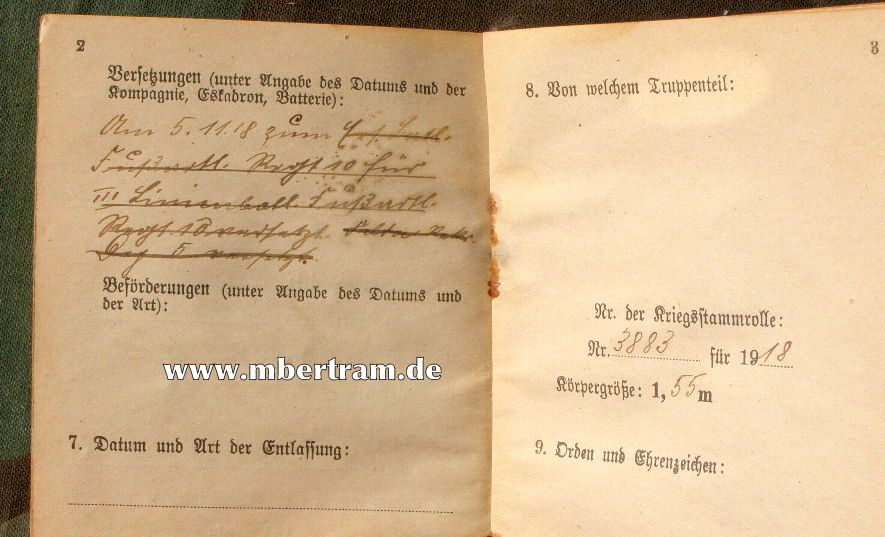 2
Versetzungen (unter Angabe des Datums und der
Kompagnie, Eskadron, Batterie):
Am 5.11.18 zum
Fußartl. Regt 10 für
III Linienbatl. Fußartl.
Regt. 10 versetzt.
5 versetzt.
Beförderungen (unter Angabe des Datums und
der Art):
www.mbertram.de
7. Datum und Art der Entlassung:
3
8. Von welchem Truppenteil:
Nr. der Kriegsstammrolle:
Nr. 3883 für 1918
Körpergröße: 1,55 m
9. Orden und Ehrenzeichen: